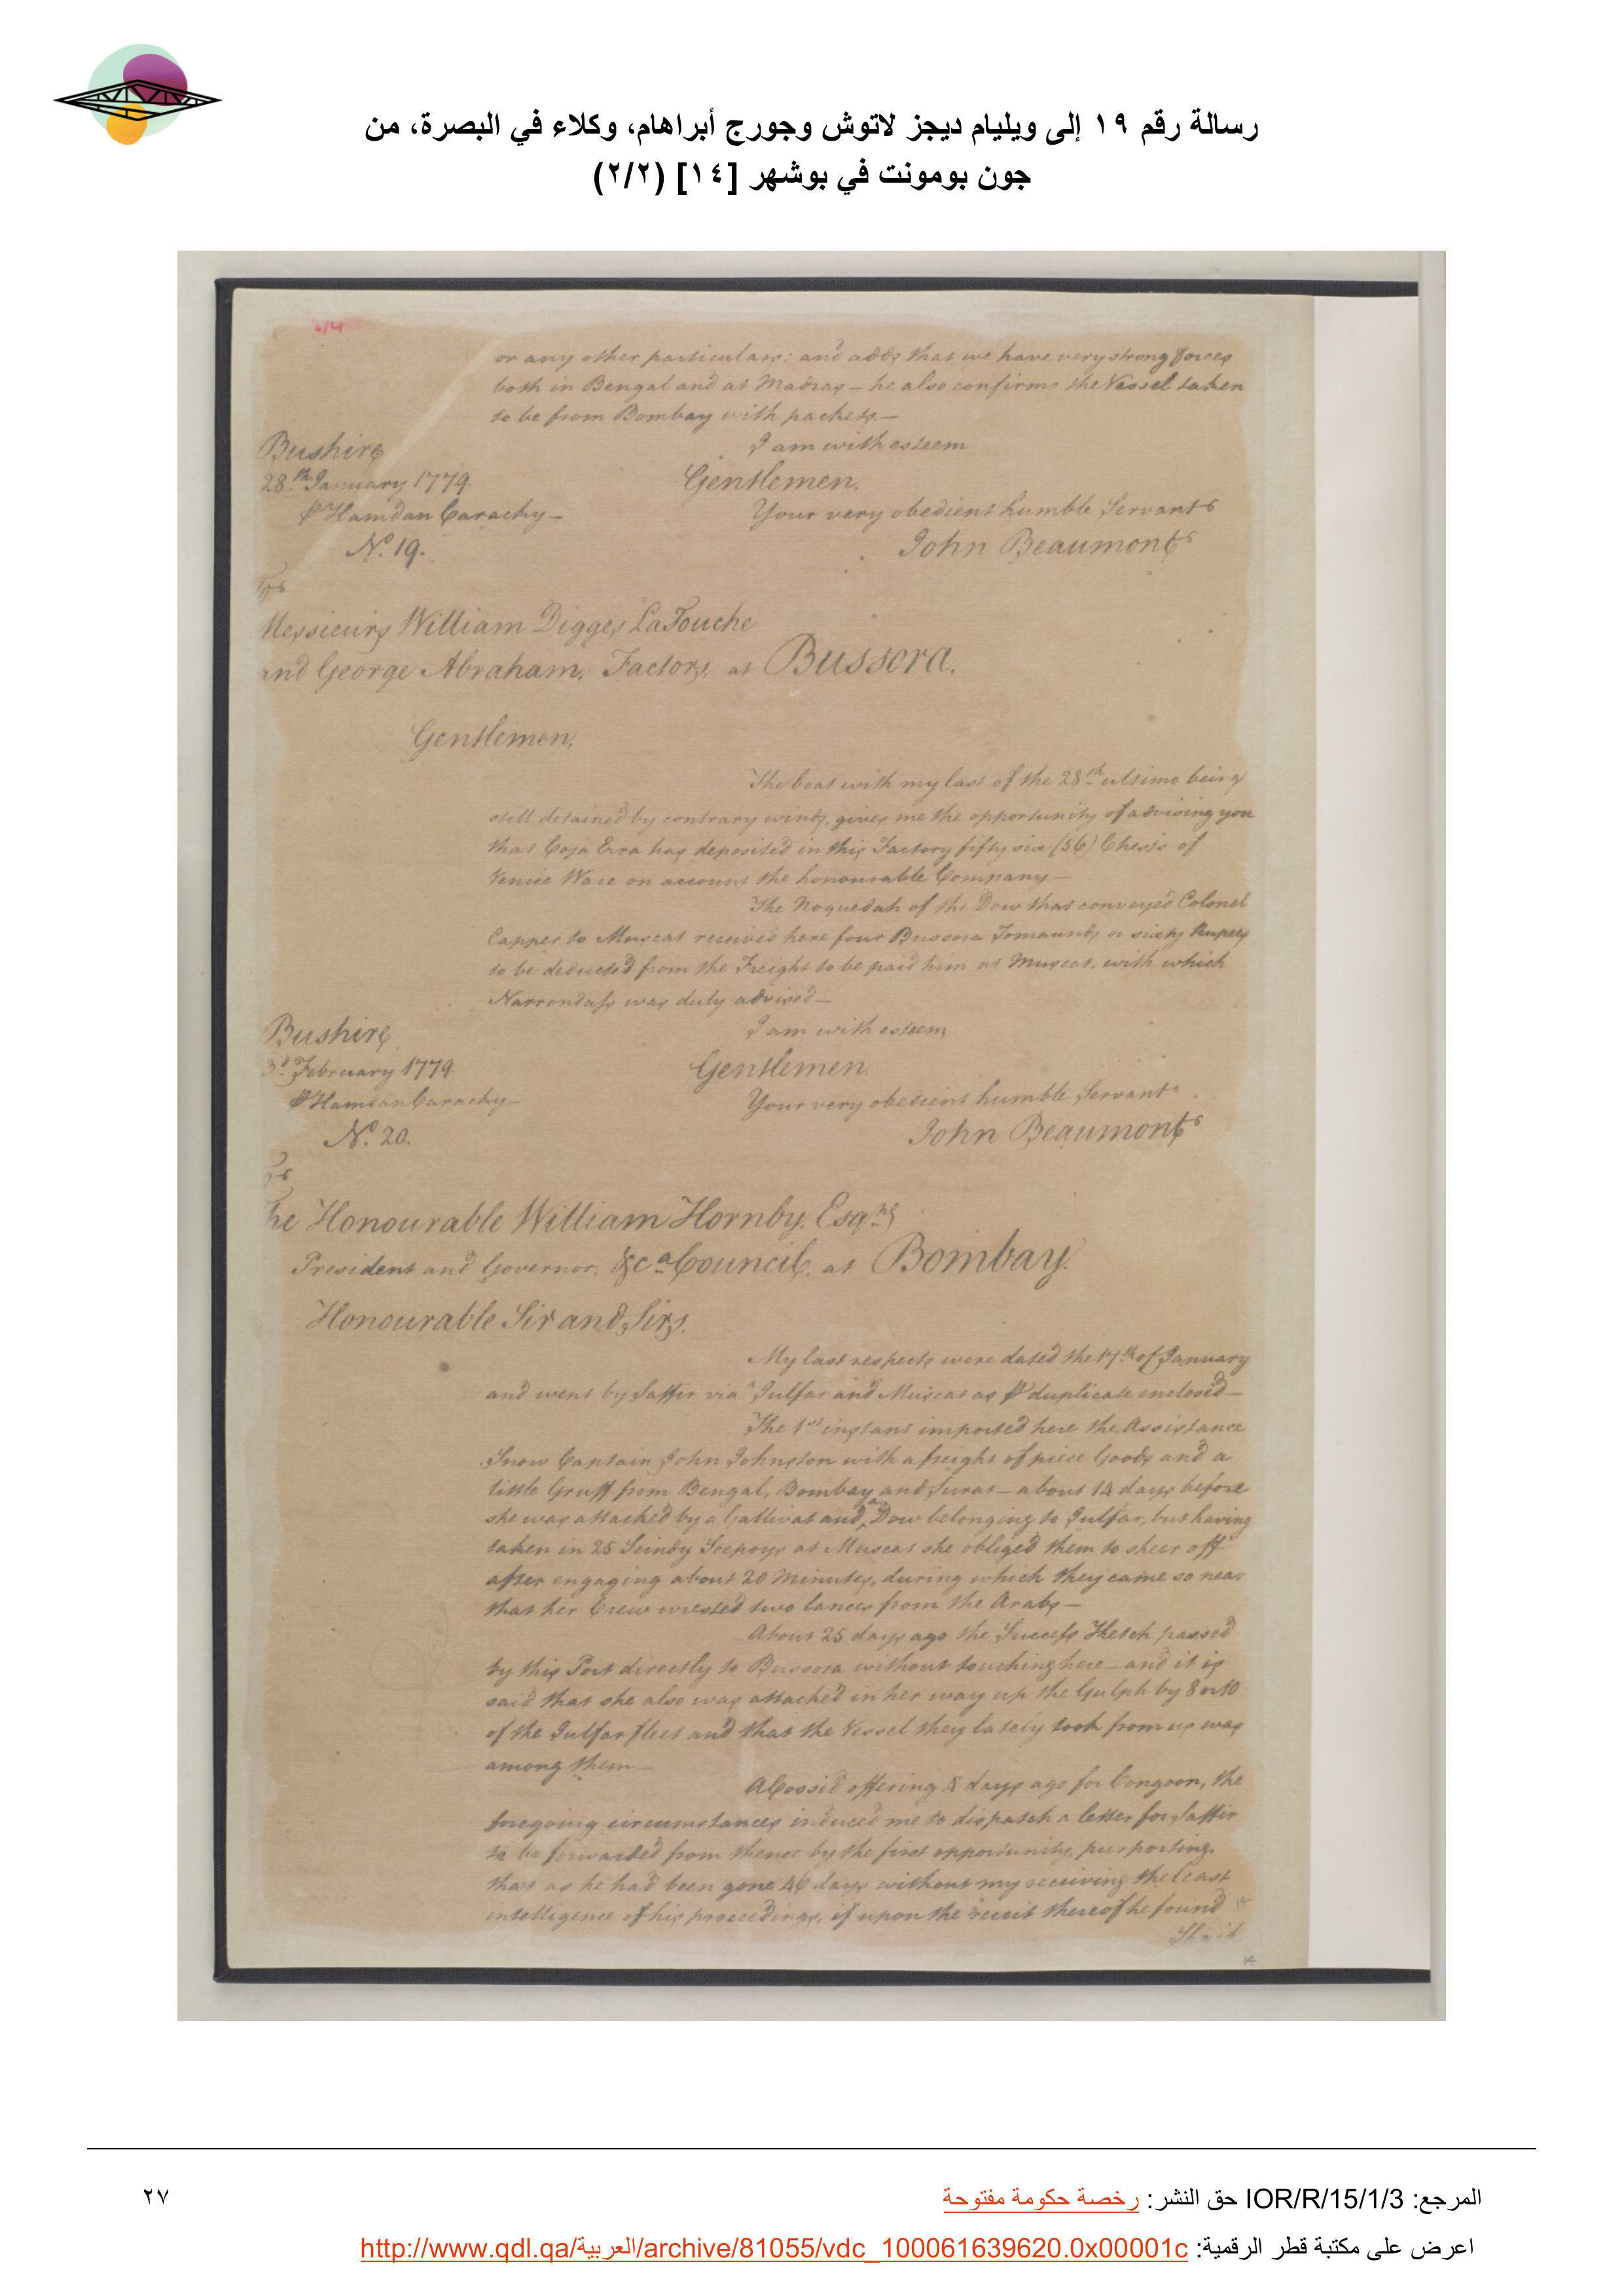 رسالة رقم ١٩ إلى ويليام ديجز لاتوش وجورج أبراهام، وكلاء في البصرة، من
جون بومونت في بوشهر [١٤] (٢/٢)
or any other particulars; and adds that we have very strong forces
both in Bengal and at Madras – he also confirms the Vessel taken
to be from Bombay with packets. –
I am with esteem
Bushire
28th January 1779.
Gentlemen.
P Hamdan Carachy –
Your very obedient humble Servant
No. 19.
John Beaumont
To
Messieurs William Digges LaTouche
and George Abraham, Factors, at Bussora.
Gentlemen,
The boat with my last of the 28th ultimo being
still detained by contrary winds, gives me the opportunity of advising you
that Coja Erra has deposited in this Factory fifty six (56) Chests of
Venice Ware on account the honourable Company –
The Noquedah of the Dow that conveyed Colonel
Capper to Muscat received here four Bussora Tomaunds or sixty Rupees
to be deducted from the Freight to be paid him at Muscat, with which
Narrondass was duly advised –
I am with esteem
Bushire
3d. February 1779.
Gentlemen.
P Hamdan Carachy –
Your very obedient humble Servant
No. 20.
John Beaumont
To
The Honourable William Hornby, Esqre
President and Governor, &ca Council, at Bombay.
Honourable Sir and Sirs.
My last respects were dated the 17th of January
and went by Saffir via Julfar and Muscat as P duplicate enclosed –
The 1st instant imported here the Assistance
Snow Captain John Johnston with a freight of piece Goods and a
little Gruff from Bengal, Bombay and Surat – about 14 days before
she was attacked by a Gallivat and a Dow belonging to Julfar, but having
taken in 25 Scindy Seepoys at Muscat she obliged them to sheer off
after engaging about 20 Minutes, during which they came so near
that her Crew wrested two lances from the Arabs –
About 25 days ago the Success Ketch passed
by this Port directly to Bussora without touching here – and it is
said that she also was attacked in her way up the Gulph by 8 or 10
of the Julfar fleet and that the Vessel they lately took from us was
among them –
A Cossid offering days ago for Congoon, the
foregoing circumstances induced me to dispatch a letter for Saffir
to be forwarded from thence by the first opportunity, purporting,
that as he had been gone 46 days without my receiving the least
intelligence of his proceedings, if upon the receit thereof he found
Shaik
14
المرجع: IOR/R/15/1/3 حق النشر: رخصة حكومة مفتوحة
٢٧
اعرض على مكتبة قطر الرقمية: http://www.qdl.qa/العربية/archive/81055/vdc_100061639620.0x00001c